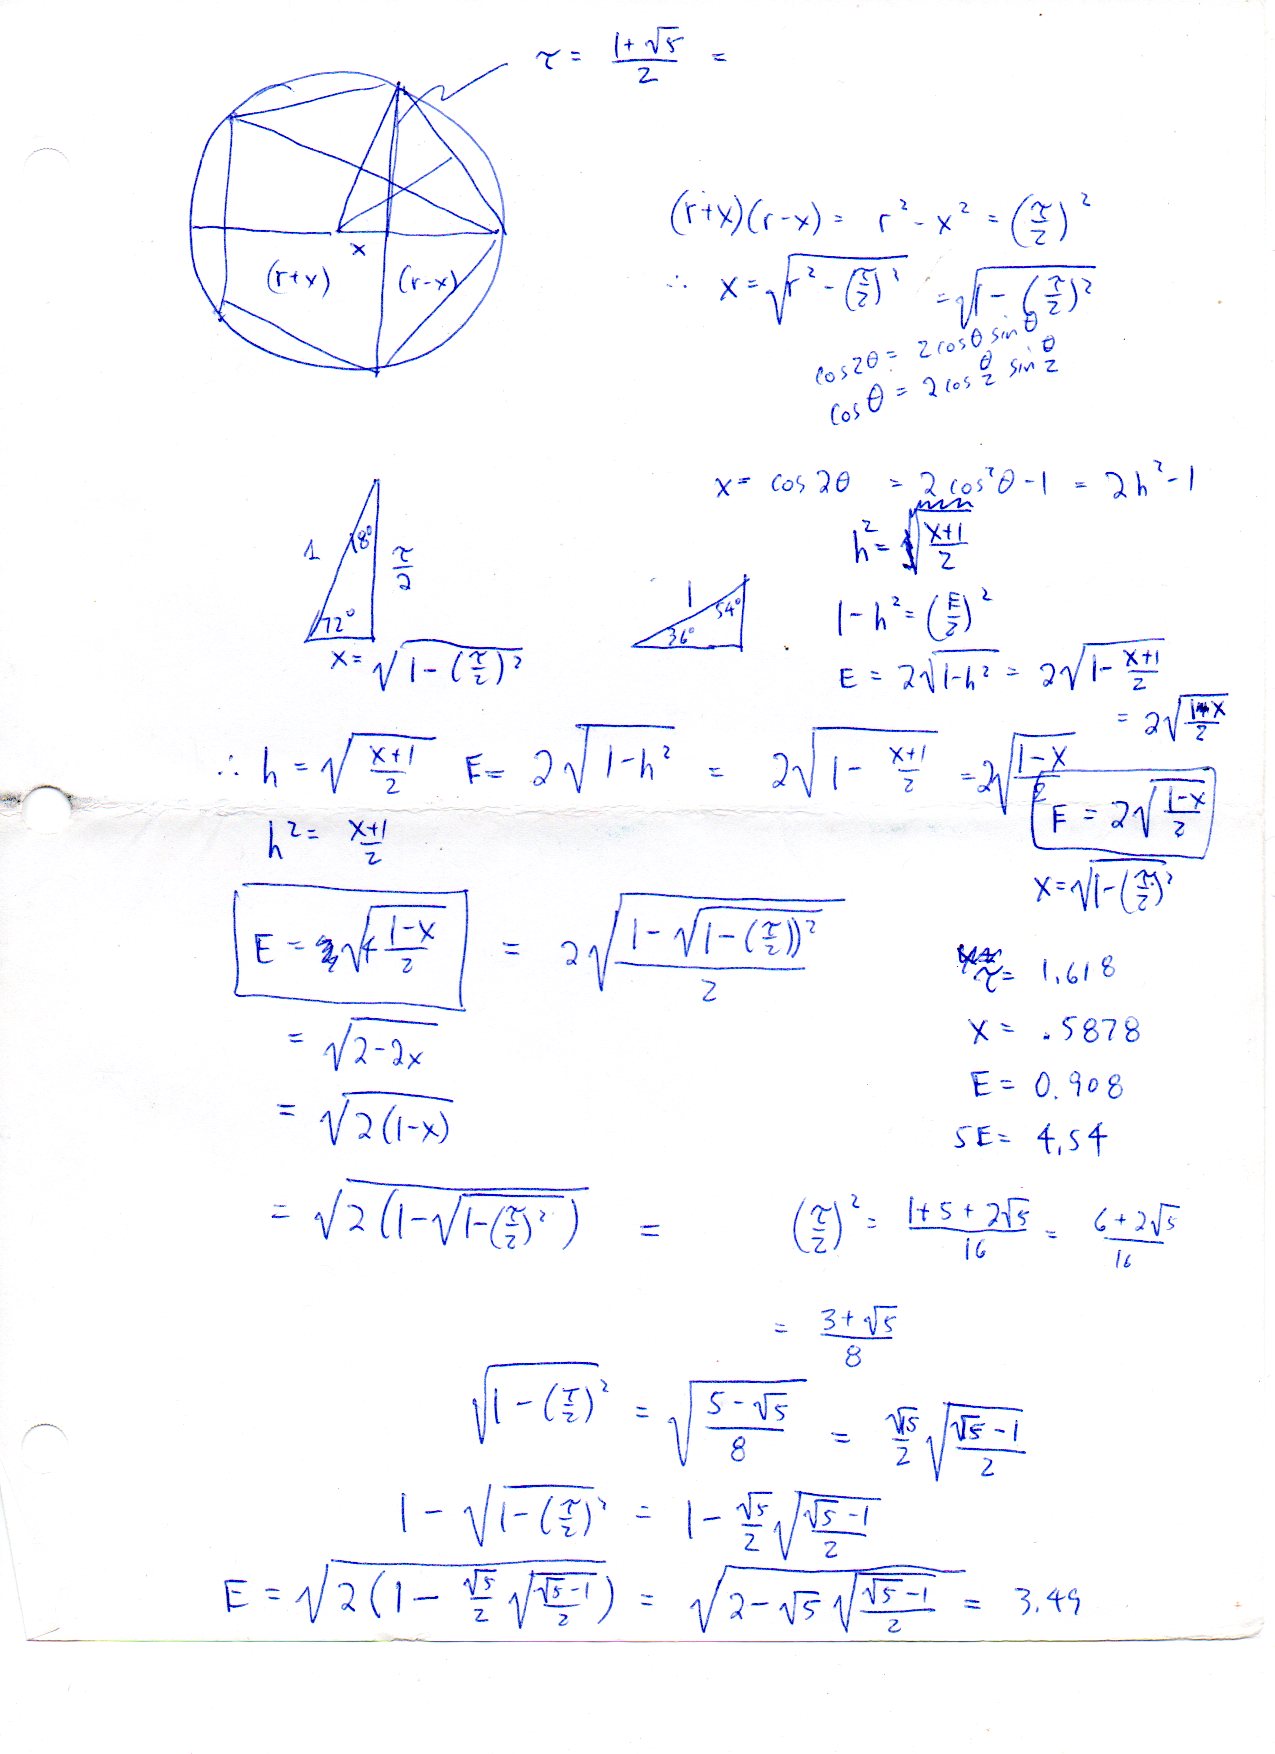 τ = (1+√5)/2 =
(r+x)(r-x) = r² - x² = (τ/2)²
x
(r+x) (r-x)
∴ x = √(r² - (τ/2)²) = √(1 - (τ/2)²)
cos2θ = 2cosθ sinθ
cosθ = 2cos θ/2 sin θ/2
x = cos 2θ = 2cos²θ - 1 = 2h² - 1
h² = (x+1)/2
1 18° τ/2
72°
x = √(1 - (τ/2)²)
1 54°
36°
1 - h² = (E/2)²
E = 2√(1-h²) = 2√(1 - (x+1)/2)
= 2√((1-x)/2)
∴ h = √((x+1)/2) E = 2√(1-h²) = 2√(1 - (x+1)/2) = 2√((1-x)/2)
E = 2√((1-x)/2)
h² = (x+1)/2
x = √(1-(τ/2)²)
E = √(4 (1-x)/2) = 2√((1 - √(1-(τ/2))²)/2)
τ = 1.618
= √(2-2x)
x = .5878
E = 0.908
= √(2(1-x))
5E = 4.54
= √(2(1-√(1-(τ/2)²)) =
(τ/2)² = (1+5+2√5)/16 = (6+2√5)/16
= (3+√5)/8
√(1-(τ/2)²) = √((5-√5)/8) = √√5/2 √((√5-1)/2)
1 - √(1-(τ/2)²) = 1 - √√5/2 √((√5-1)/2)
E = √(2(1 - √√5/2 √((√5-1)/2))) = √(2-√√5 √((√5-1)/2)) = 3.49